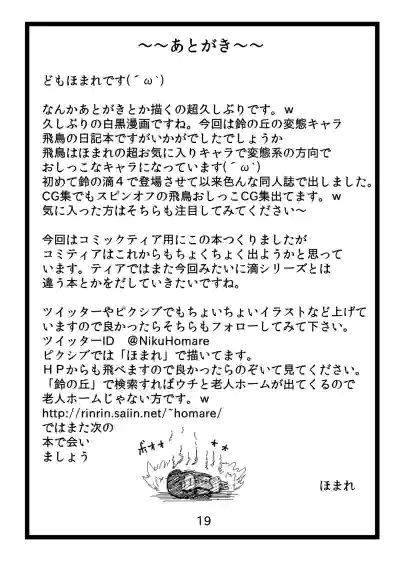 ～～あとがき～～
どもほまれです(´ω`)
なんかあとがきとか描くの超久しぶりです。ｗ
久しぶりの白黒漫画ですね。今回は鈴の丘の変態キャラ
飛鳥の日記本ですがいかがでしたでしょうか
飛鳥はほまれの超お気に入りキャラで変態系の方向で
おしっこなキャラになっています(´ω`)
初めて鈴の滴４で登場させて以来色んな同人誌で出しました。
CG集でもスピンオフの飛鳥おしっこCG集出てます。ｗ
気に入った方はそちらも注目してみてください～
今回はコミックティア用にこの本つくりましたが
コミティアはこれからもちょくちょく出ようかと思って
います。ティアではまた今回みたいに滴シリーズとは
違う本とかをだしていきたいですね。
ツイッターやピクシブでもちょいちょいイラストなど上げて
いますので良かったらそちらもフォローしてみて下さい。
ツイッターID　@NikuHomare
ピクシブでは「ほまれ」で描いてます。
ＨＰからも飛べますので良かったらのぞいて見てください。
「鈴の丘」で検索すればウチと老人ホームが出てくるので
老人ホームじゃない方です。ｗ
http://rinrin.saiin.net/~homare/
ではまた次の
本で会い
ましょう
ほまれ
19